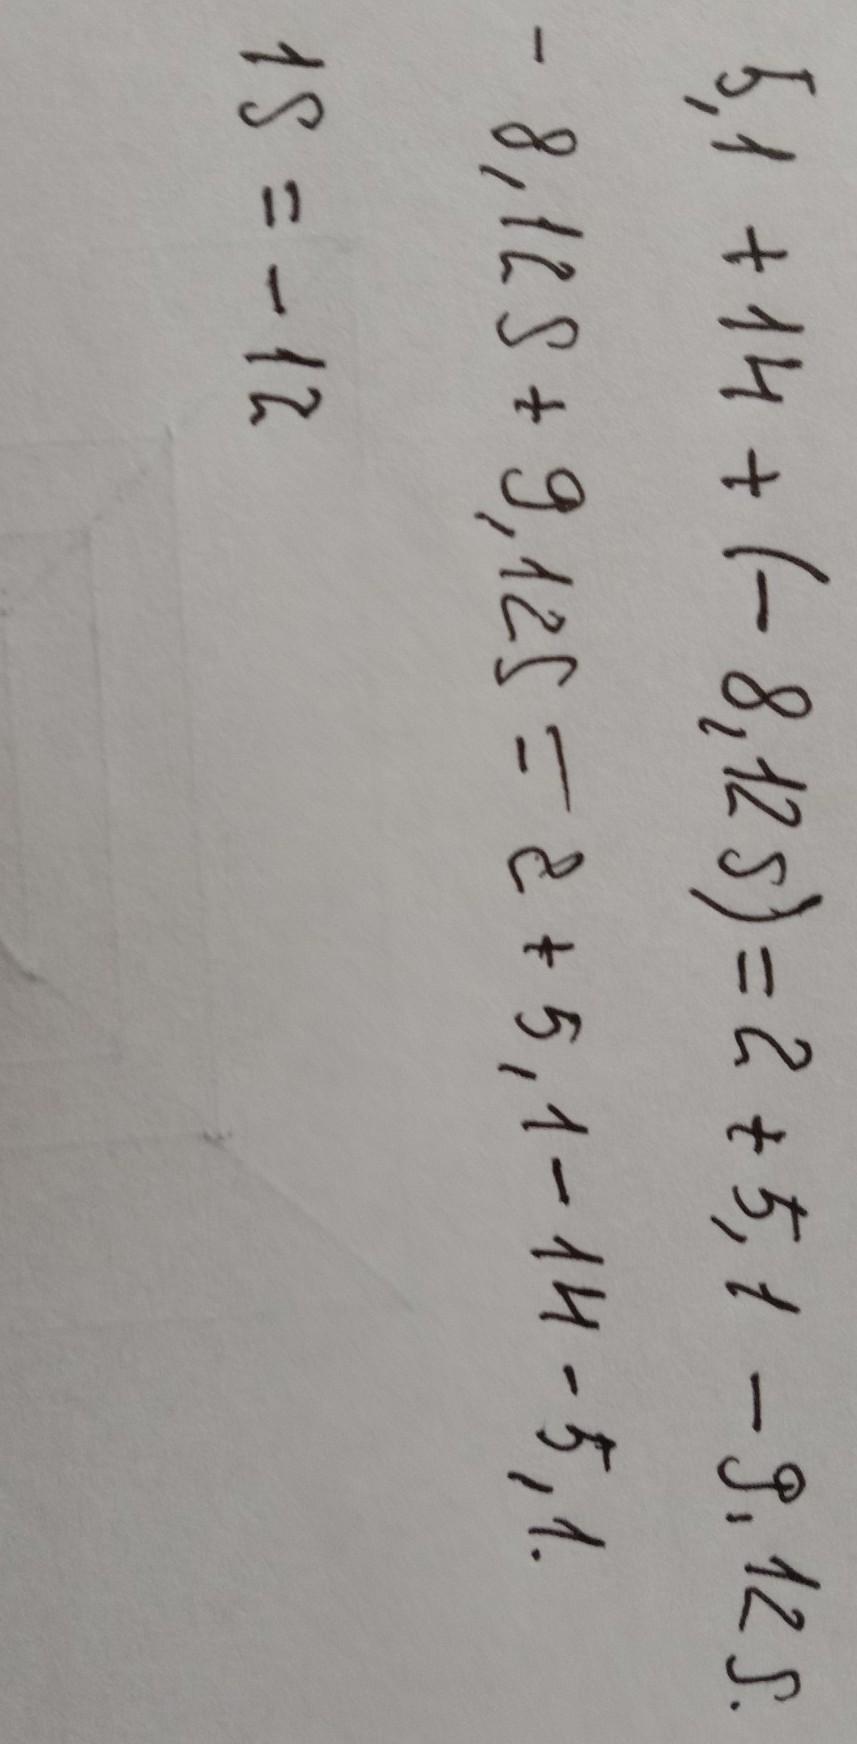 5,1 + 14 + (- 8,12s) = 2 + 5,1 - 9,12s.
- 8,12s + 9,12s = 2 + 5,1 - 14 - 5,1.
1s = - 12